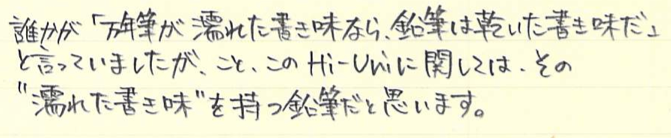 誰かが「万年筆が濡れた書き味なら、鉛筆は乾いた書き味だ」
と言っていましたが、こと、このHi-Uniに関しては、その
"濡れた書き味"を持つ鉛筆だと思います。